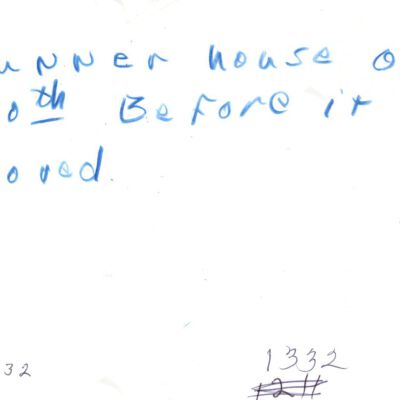 unner house o
0th Before it
oved.
32 1332
1211